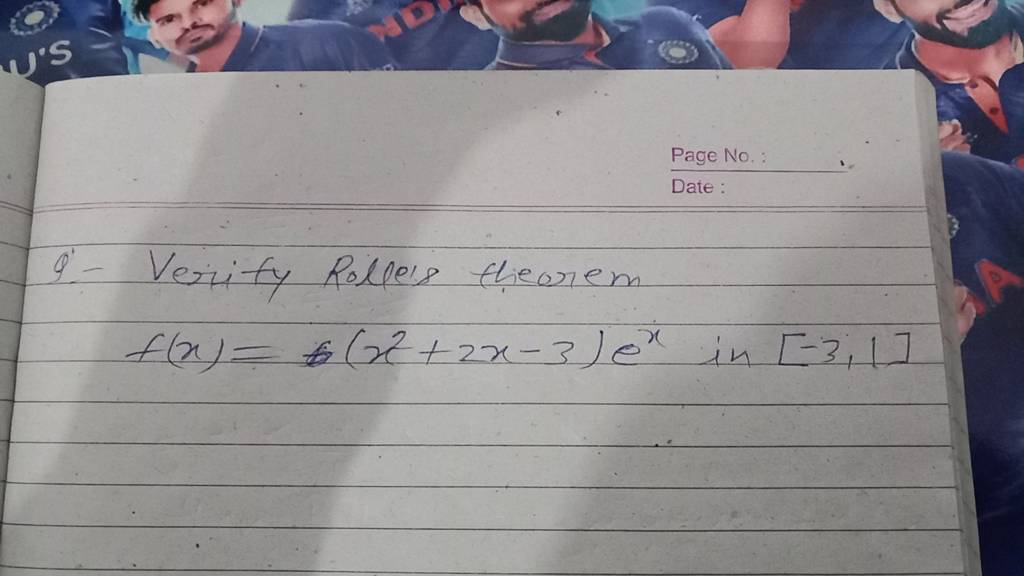 U'S
INDIA
Page No. :
Date :
Q - Verify Rolle's theorem
f(x) = (x²+2x-3)eˣ in [-3,1]